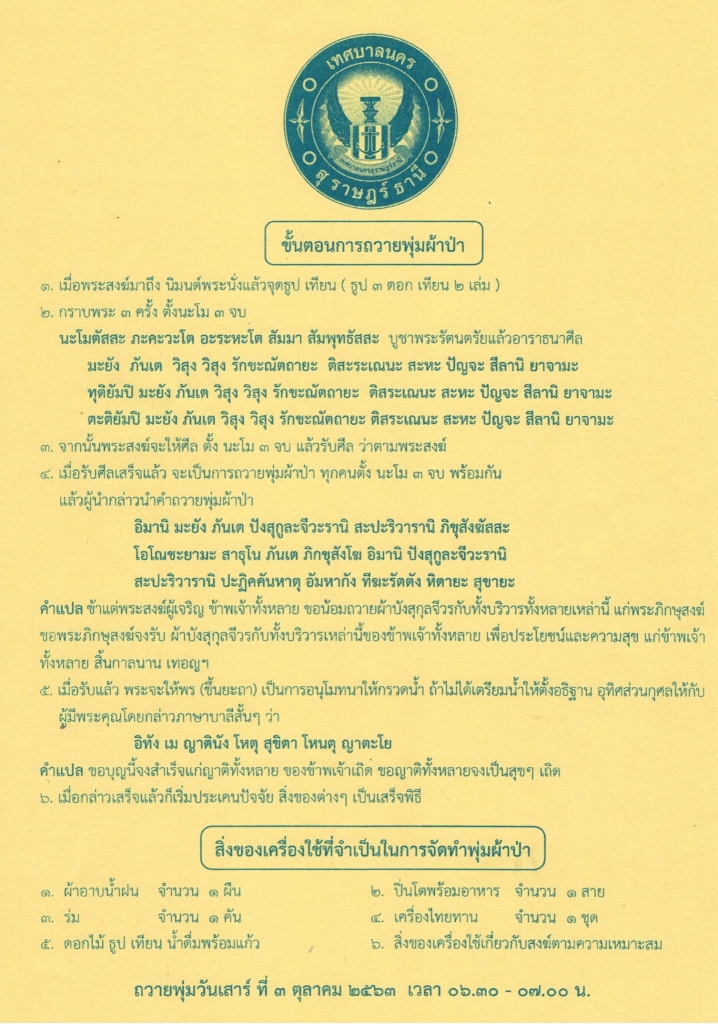 เทศบาลนคร
เทศบาลนครสุราษฎร์ธานี
สุราษฎร์ธานี
ขั้นตอนการถวายพุ่มผ้าป่า
๑. เมื่อพระสงฆ์มาถึง นิมนต์พระนั่งแล้วจุดธูป เทียน ( ธูป ๓ ดอก เทียน ๒ เล่ม )
๒. กราบพระ ๓ ครั้ง ตั้งนะโม ๓ จบ
นะโมตัสสะ ภะคะวะโต อะระหะโต สัมมา สัมพุทธัสสะ บูชาพระรัตนตรัยแล้วอาราธนาศีล
มะยัง ภันเต วิสุง วิสุง รักขะณัตถายะ ติสะระเณนะ สะหะ ปัญจะ สีลานิ ยาจามะ
ทุติยัมปิ มะยัง ภันเต วิสุง วิสุง รักขะณัตถายะ ติสระเณนะ สะหะ ปัญจะ สีลานิ ยาจามะ
ตะติยัมปิ มะยัง ภันเต วิสุง วิสุง รักขะณัตถายะ ติสระเณนะ สะหะ ปัญจะ สีลานิ ยาจามะ
๓. จากนั้นพระสงฆ์จะให้ศีล ตั้ง นะโม ๓ จบ แล้วรับศีล ว่าตามพระสงฆ์
๔. เมื่อรับศีลเสร็จแล้ว จะเป็นการถวายพุ่มผ้าป่า ทุกคนตั้ง นะโม ๓ จบ พร้อมกัน
แล้วผู้นำกล่าวนำคำถวายพุ่มผ้าป่า
อิมานิ มะยัง ภันเต ปังสุกูละจีวะรานิ สะปะริวารานิ ภิขุสังฆัสสะ
โอโณชะยามะ สาธุโน ภันเต ภิกขุสังโฆ อิมานิ ปังสุกูละจีวะรานิ
สะปะริวารานิ ปะฏิคคันหาตุ อัมหากัง ทีฆะรัตตัง หิตายะ สุขายะ
คำแปล ข้าแต่พระสงฆ์ผู้เจริญ ข้าพเจ้าทั้งหลาย ขอน้อมถวายผ้าบังสุกุลจีวรกับทั้งบริวารทั้งหลายเหล่านี้ แก่พระภิกษุสงฆ์
ขอพระภิกษุสงฆ์จงรับ ผ้าบังสุกุลจีวรกับทั้งบริวารเหล่านี้ของข้าพเจ้าทั้งหลาย เพื่อประโยชน์และความสุข แก่ข้าพเจ้า
ทั้งหลาย สิ้นกาลนาน เทอญฯ
๕. เมื่อรับแล้ว พระจะให้พร (ขึ้นยะถา) เป็นการอนุโมทนาให้กรวดน้ำ ถ้าไม่ได้เตรียมน้ำให้ตั้งอธิฐาน อุทิศส่วนกุศลให้กับ
ผู้มีพระคุณโดยกล่าวภาษาบาลีสั้นๆ ว่า
อิทัง เม ญาตินัง โหตุ สุขิตา โหนตุ ญาตะโย
คำแปล ขอบุญนี้จงสำเร็จแก่ญาติทั้งหลาย ของข้าพเจ้าเถิด ขอญาติทั้งหลายจงเป็นสุขๆ เถิด
๖. เมื่อกล่าวเสร็จแล้วก็เริ่มประเคนปัจจัย สิ่งของต่างๆ เป็นเสร็จพิธี
สิ่งของเครื่องใช้ที่จำเป็นในการจัดทำพุ่มผ้าป่า
๑. ผ้าอาบน้ำฝน จำนวน ๑ ผืน ๒. ปิ่นโตพร้อมอาหาร จำนวน ๑ สาย
๓. ร่ม จำนวน ๑ คัน ๔. เครื่องไทยทาน จำนวน ๑ ชุด
๕. ดอกไม้ ธูป เทียน น้ำดื่มพร้อมแก้ว ๖. สิ่งของเครื่องใช้เกี่ยวกับสงฆ์ตามความเหมาะสม
ถวายพุ่มวันเสาร์ ที่ ๓ ตุลาคม ๒๕๖๓ เวลา ๐๖.๓๐ - ๐๗.๐๐ น.